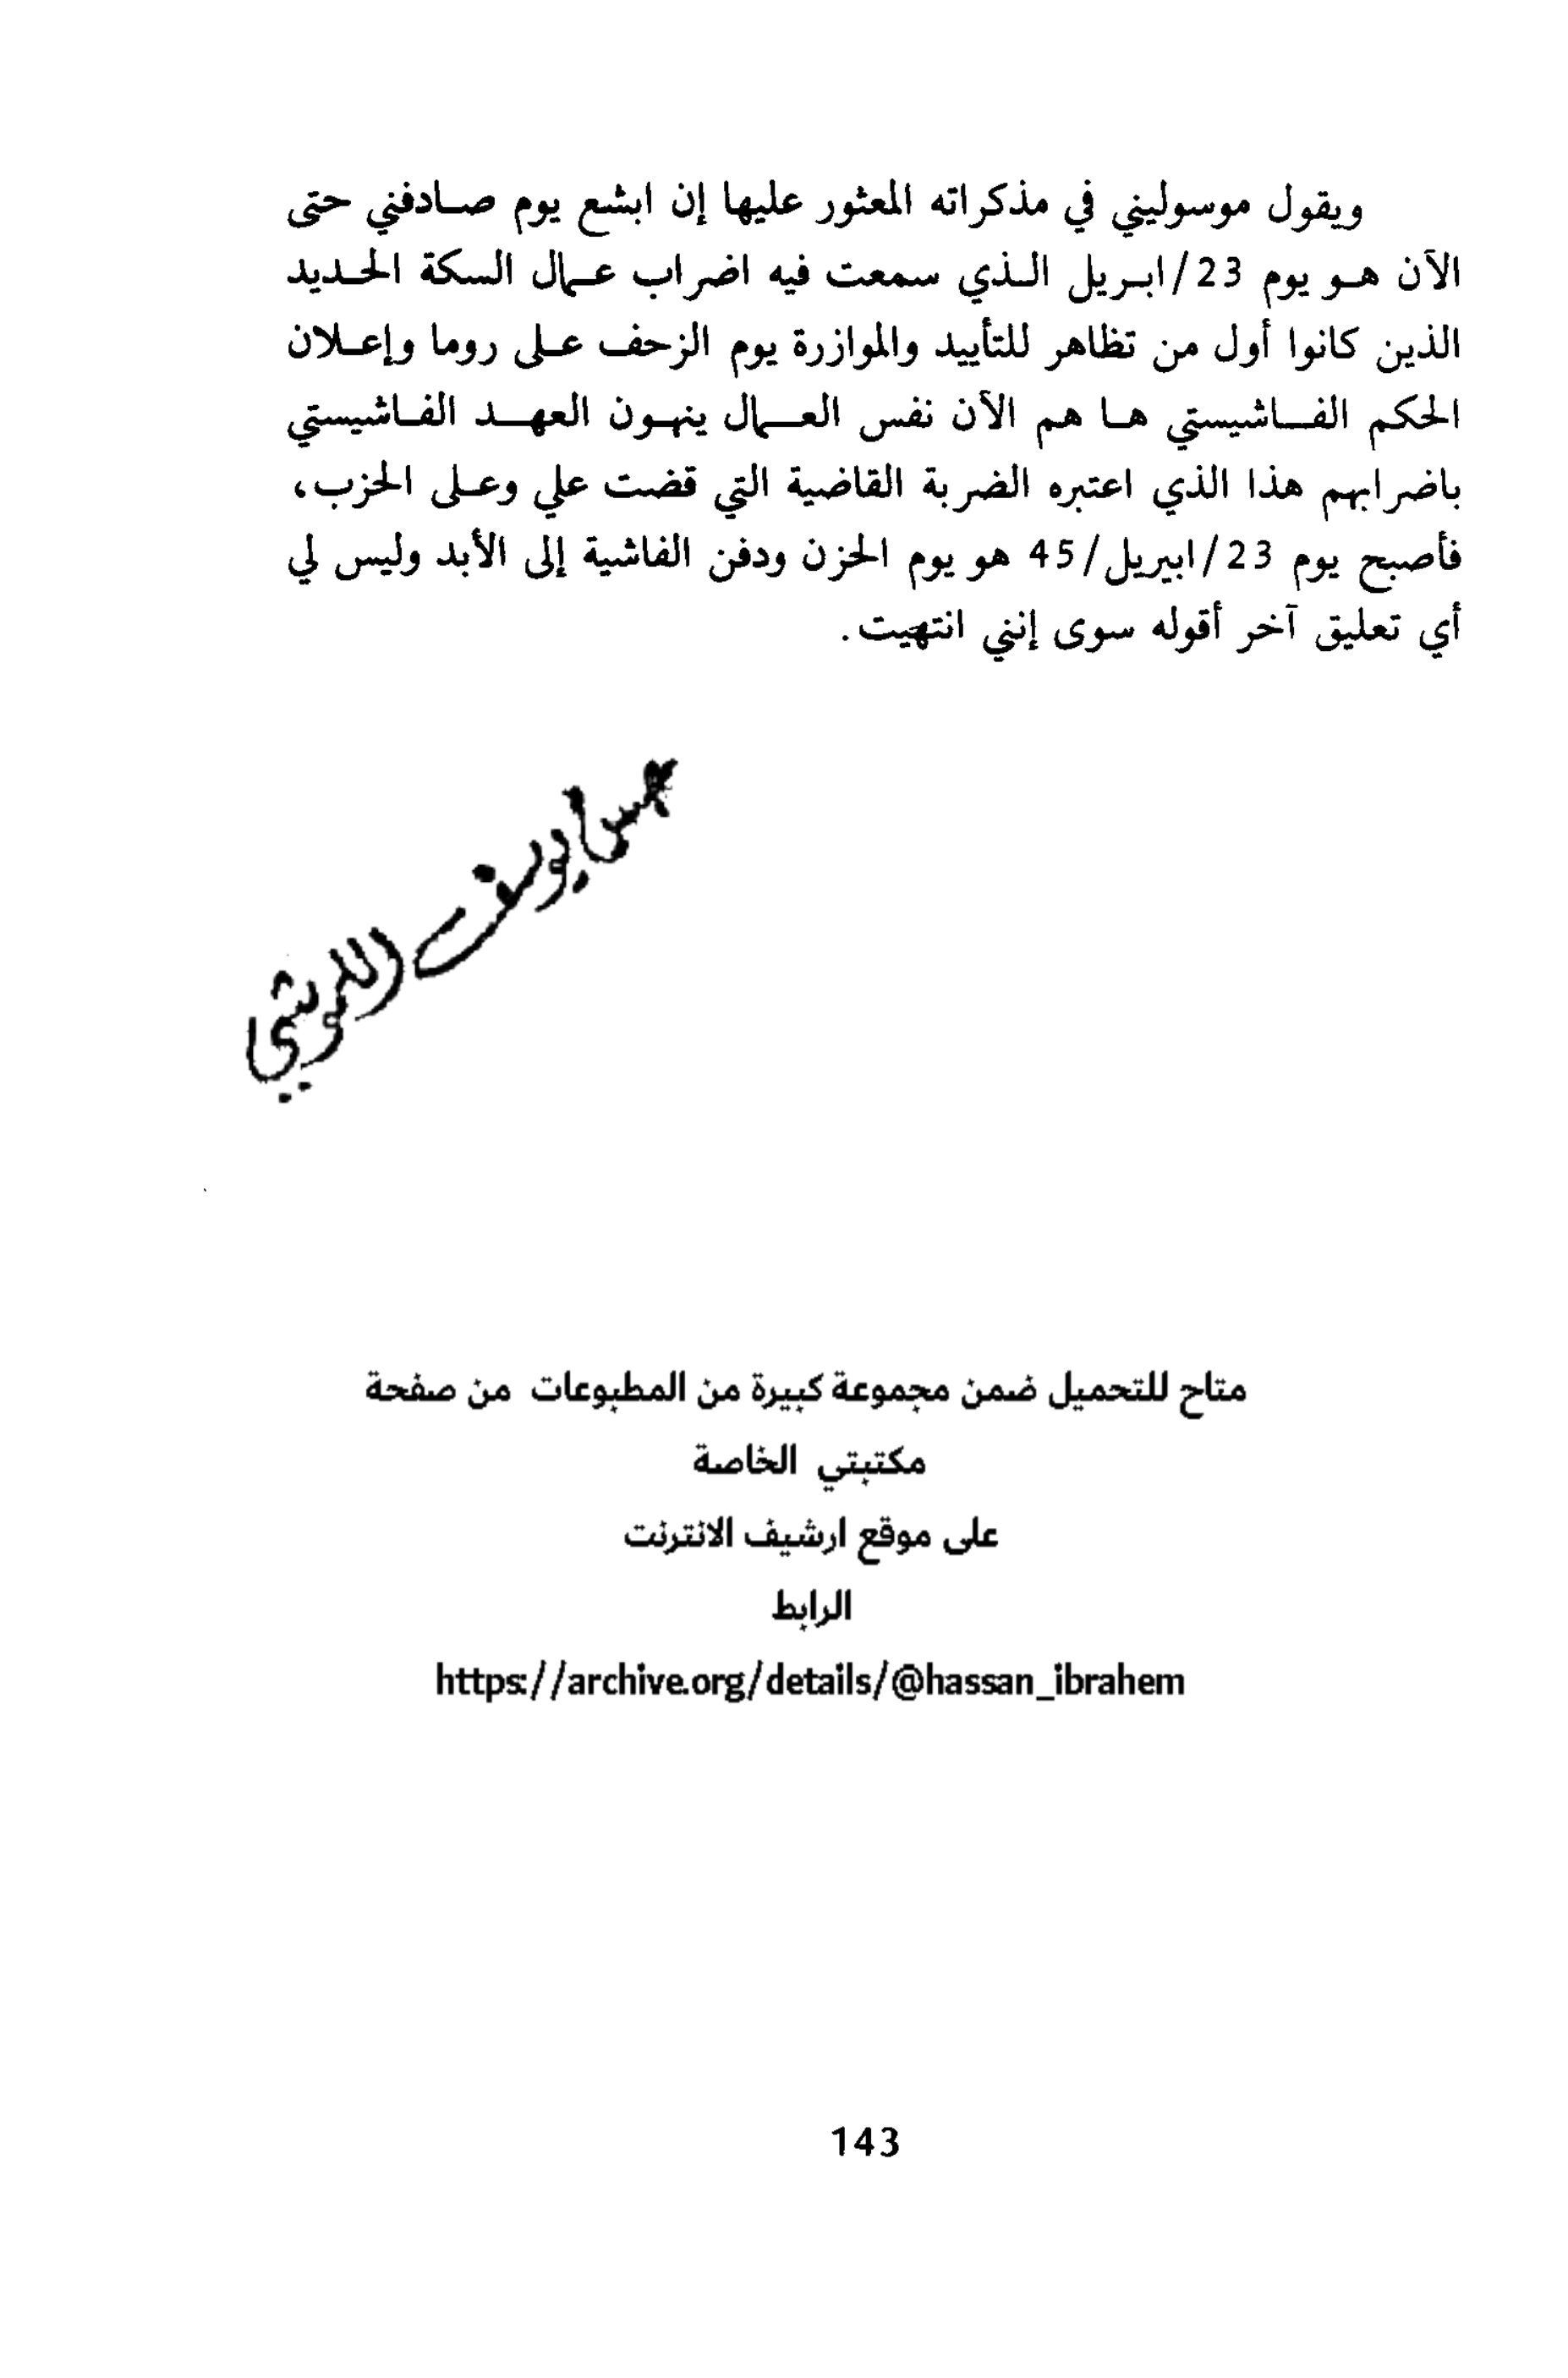 ويقول موسوليني في مذكراته المعثور عليها إن ابشع يوم صادفني حتى
الآن هو يوم 23/ابريل الذي سمعت فيه اضراب عمال السكة الحديد
الذين كانوا أول من تظاهر للتأييد والموازرة يوم الزحف على روما وإعلان
الحكم الفاشيستي ها هم الآن نفس العمال ينهون العهد الفاشيستي
باضرابهم هذا الذي اعتبره الضربة القاضية التي قضت علي وعلى الحزب،
فأصبح يوم 23/ابيريل/45 هو يوم الحزن ودفن الفاشية إلى الأبد وليس لي
أي تعليق آخر أقوله سوى إنني انتهيت.
يوسف اللموشي
متاح للتحميل ضمن مجموعة كبيرة من المطبوعات من صفحة
مكتبتي الخاصة
على موقع ارشيف الانترنت
الرابط
https://archive.org/details/@hassan_ibrahem
143